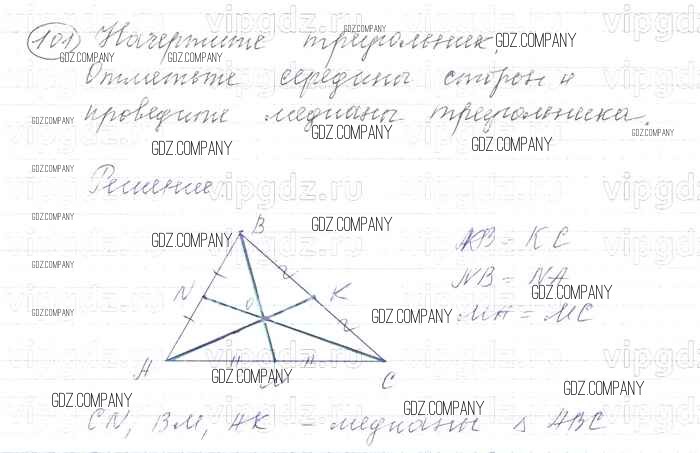 101) Начертите треугольник.
Отметьте середины сторон и
проведите медианы треугольника.
Решение
B
N
O
K
A
M
C
KB = KC
NB = NA
MA = MC
CN, BM, AK - медианы Δ ABC
GDZ.COMPANY
vipgdz.ru